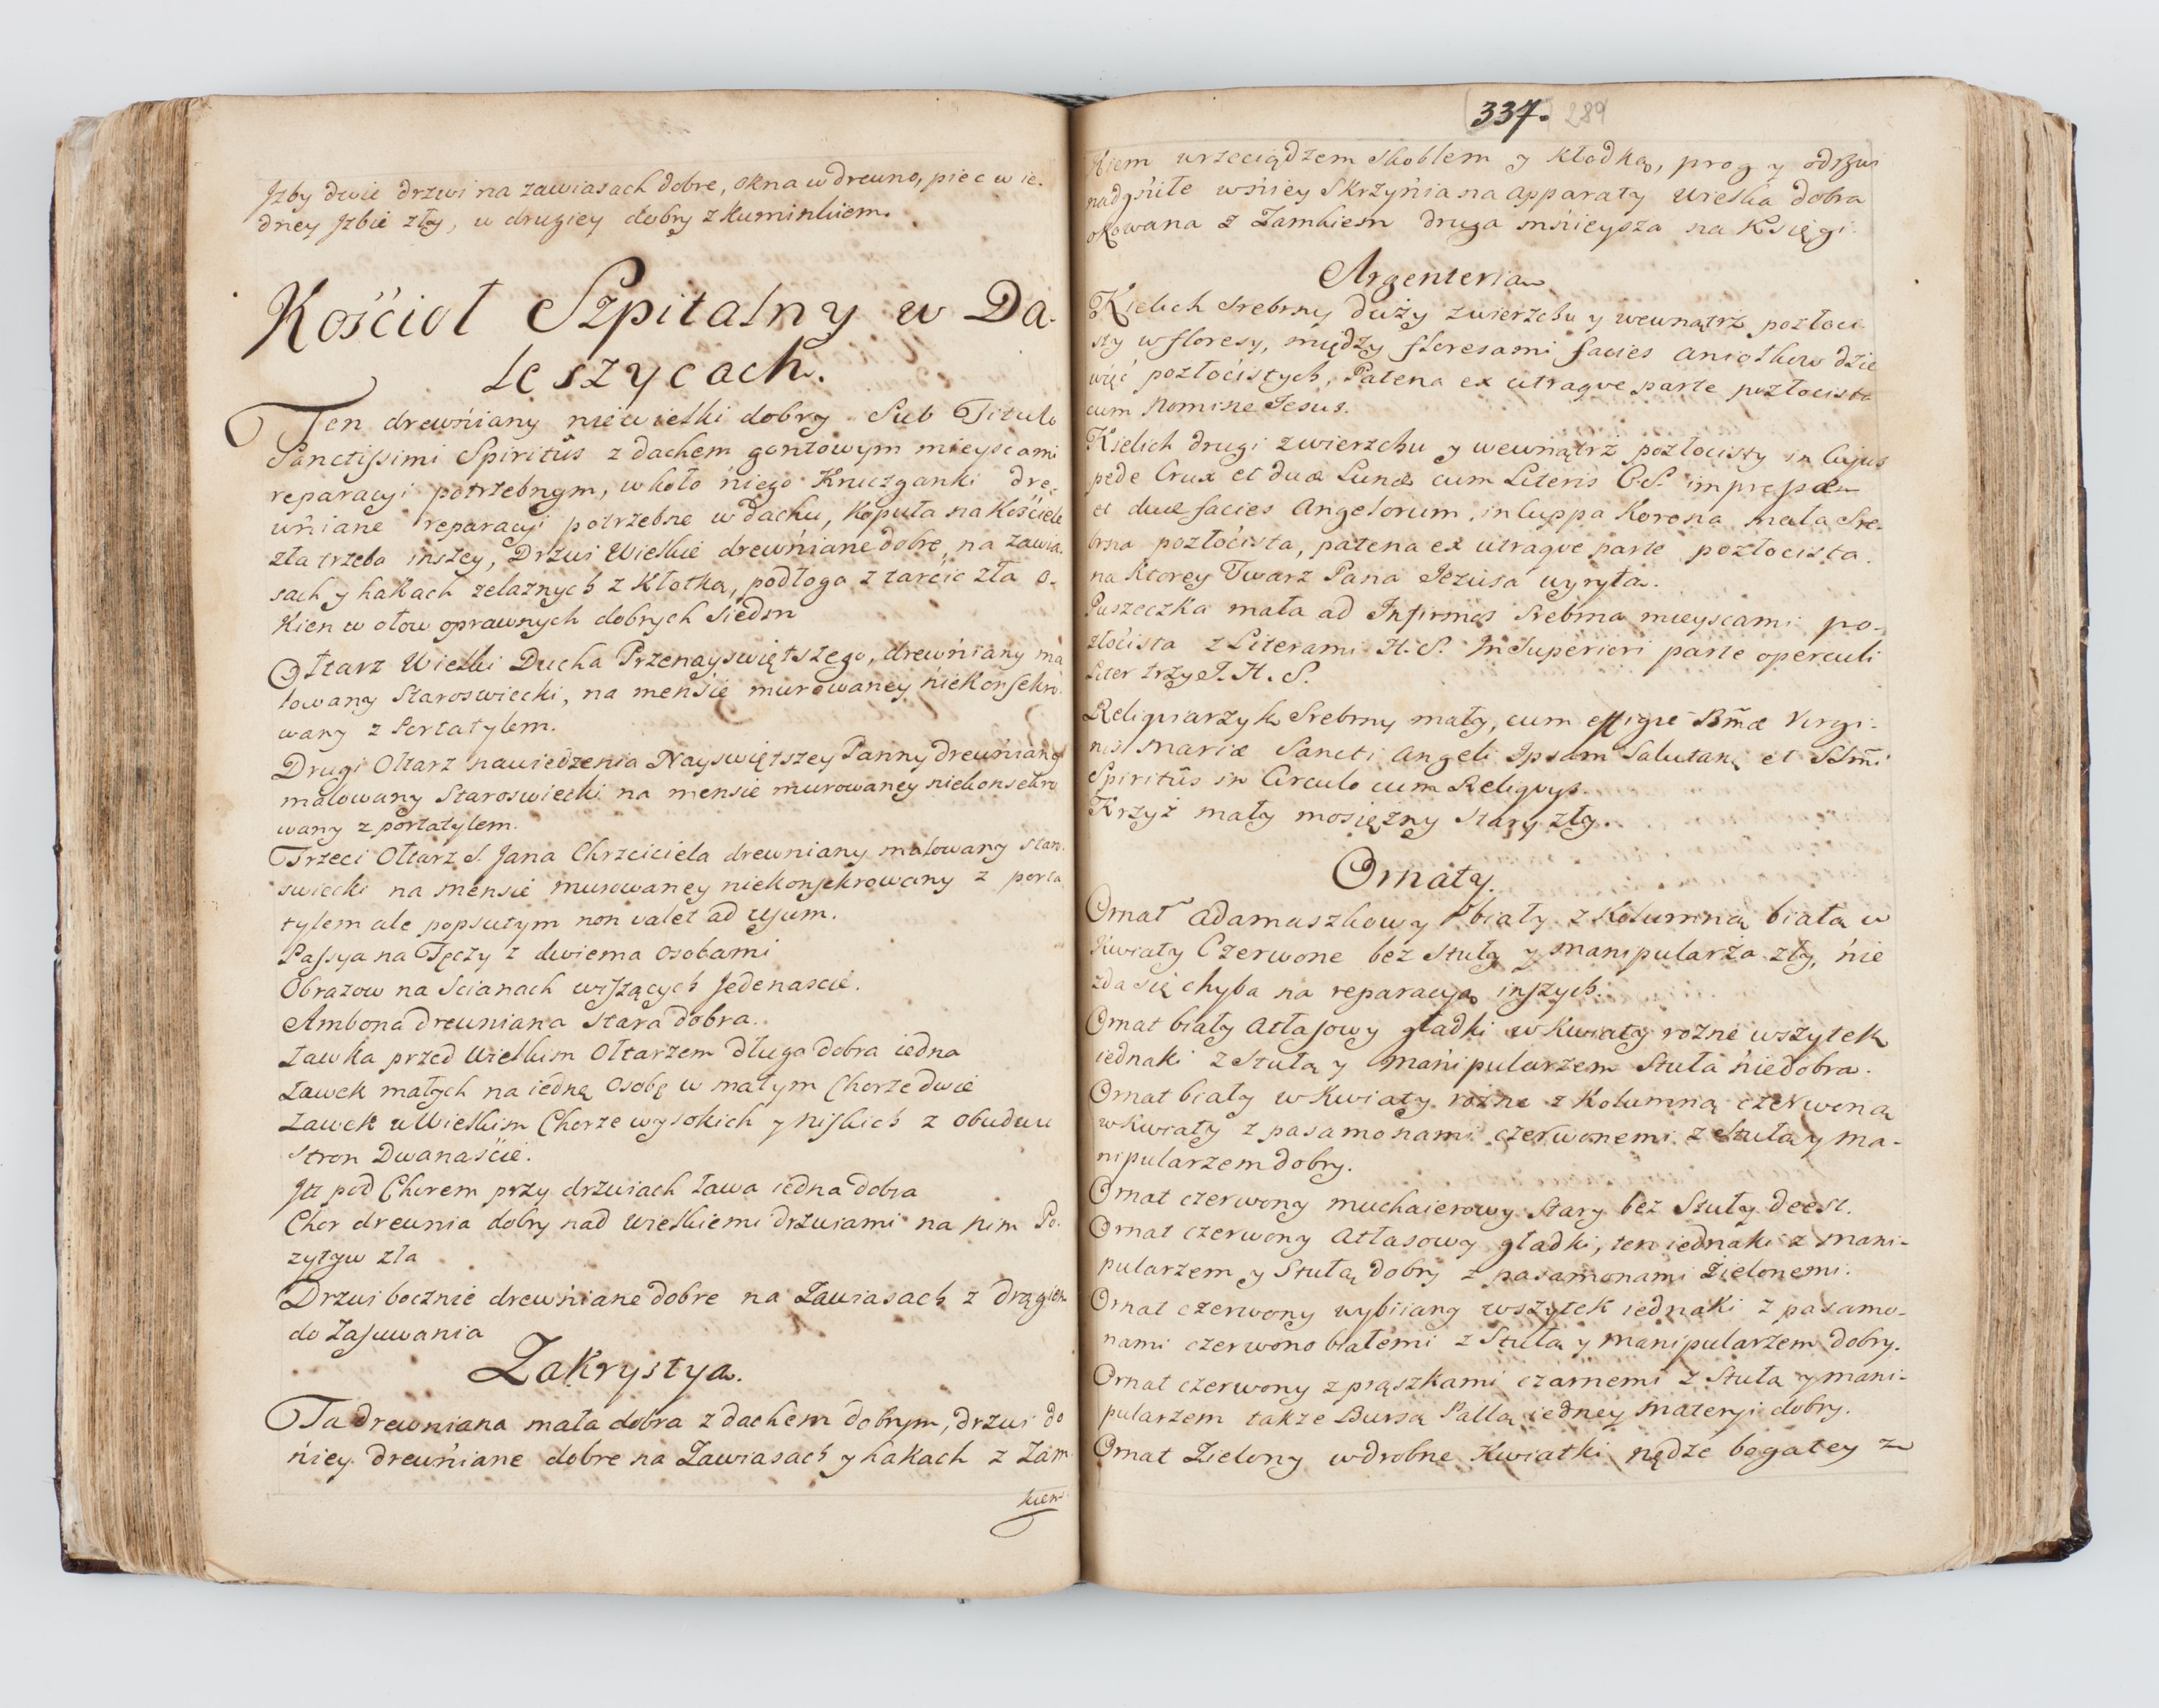 Jzby dwie drzwi na zawiasach dobre, okna w drewno, piec w ie-
dney Jzbie zły, w drugiey dobry z kuminkiem.
Kościoł Szpitalny w Da-
leszycach.
Ten drewniany niewielki dobry Sub Titulo
Sanctissimi Spiritûs z dachem gontowym mieyscami
reparacyi potrzebnym, wkoło niego Kruczganki dre-
wniane reparacyi potrzebne w dachu, Kopuła na Kościele
zła trzeba inszey, Drzwi Wielkie drewniane dobre na zawia-
sach y hakach zelaznych z Kłotką, podłoga z tarcic zła o-
kien w ołow oprawnych dobrych siedm
Ołtarz Wielki Ducha Przenayswiętszego, drewniany ma
lowany Staroswiecki, na mensie murowaney niekonsekro-
wany z Portatylem.
Drugi Ołtarz nawiedzenia Nayswiętszey Panny drewniany
malowany Staroswiecki na mensie murowaney niekonsekro
wany z portatylem.
Trzeci Ołtarz S. Jana Chrzciciela drewniany malowany staro
swiecki na mensie murowaney niekonsekrowany z porta
tylem ale popsutym non valet ad usum.
Passya na Tęczy z dwiema osobami
Obrazow na Scianach wiszących Jedenascie.
Ambona drewniana stara dobra.
Ławka przed Wielkim Ołtarzem długa dobra iedna
Ławek małych na iedną osobę w małym Chorze dwie
Ławek w Wielkim Chorze wysokich y niskich z obudwu
stron Dwanaście.
Jtz pod Chorem przy drzwiach ława iedna dobra
Chor drewnia dobry nad wielkiemi drzwiami na nim Po-
zytyw zła
Drzwi bocznie drewniane dobre na Zawiasach z drągiem
do Zasuwania
Zakrystya.
Ta drewniana mała dobra z dachem dobrym, drzwi do
niey drewniane dobre na Zawiasach y hakach z Zam-
kiem
337. 289
Kiem wrzeciądzem skoblem y Kłodką, prog y odrzwi
nadgniłe w niey Skrzynia na Apparaty wielka dobra
okowana z Zamkiem druga mnieysza na Księgi.
Argenteria
Kielich srebrny duży zwierzchu y wewnątrz pozłoci
sty w floresy, między floresami facies aniołkow dzie
więć pozłocistych, Patena ex utraque parte pozłocista
cum Nomine Jesus.
Kielich drugi zwierzchu y wewnątrz pozłocisty in Cujus
pede Crux et duæ Lunæ cum Literis C.S. impressæ
et duæ facies Angelorum, in Cuppa Korona mała Sre-
brna pozłocista, patena ex utraque parte pozłocista.
na Ktorey Twarz Pana Jezusa wyryta.
Puszeczka mała ad Infirmos srebrna mieyscami po-
złocista z Literami H.S. In Superiori parte operculi
liter trzy J.H.S.
Religuiarzyk Srebrny mały, cum effigie Bm̃æ Virgi-
nis Mariæ Sancti Angeli Ipsam Salutani et SSm̃i
Spiritûs in Circulo cum Reliquys.
Krzyż mały mosiężny stary zły.
Ornaty.
Ornat adamaszkowy biały z Kolumną białą w
Kwiaty Czerwone bez stuły y manipularza zły, nie
zda się chyba na reparacyą inszych.
Ornat biały Atłasowy gładki w Kwiaty rozne wszytek
iednaki z Stułą y Manipularzem Stuła niedobra.
Ornat biały w Kwiaty rożne z Kolumną czerwoną
w Kwiaty z pasamonami czerwonemi z Stułą y ma-
nipularzem dobry.
Ornat czerwony muchaierowy Stary bez Stuły deest.
Ornat czerwony Atłasowy gładki, ten iednaki z Mani-
pularzem y Stułą dobry z pasamonami Zielonemi.
Ornat czerwony wybiiany wszytek iednaki z pasamo-
nami czerwono białemi z Stułą y manipularzem dobry.
Ornat czerwony z prąszkami czarnemi z Stułą y mani-
pularzem takze Bursą Pallą iedney materyi dobry.
Ornat Zielony w drobne Kwiatki nędze bogatey z